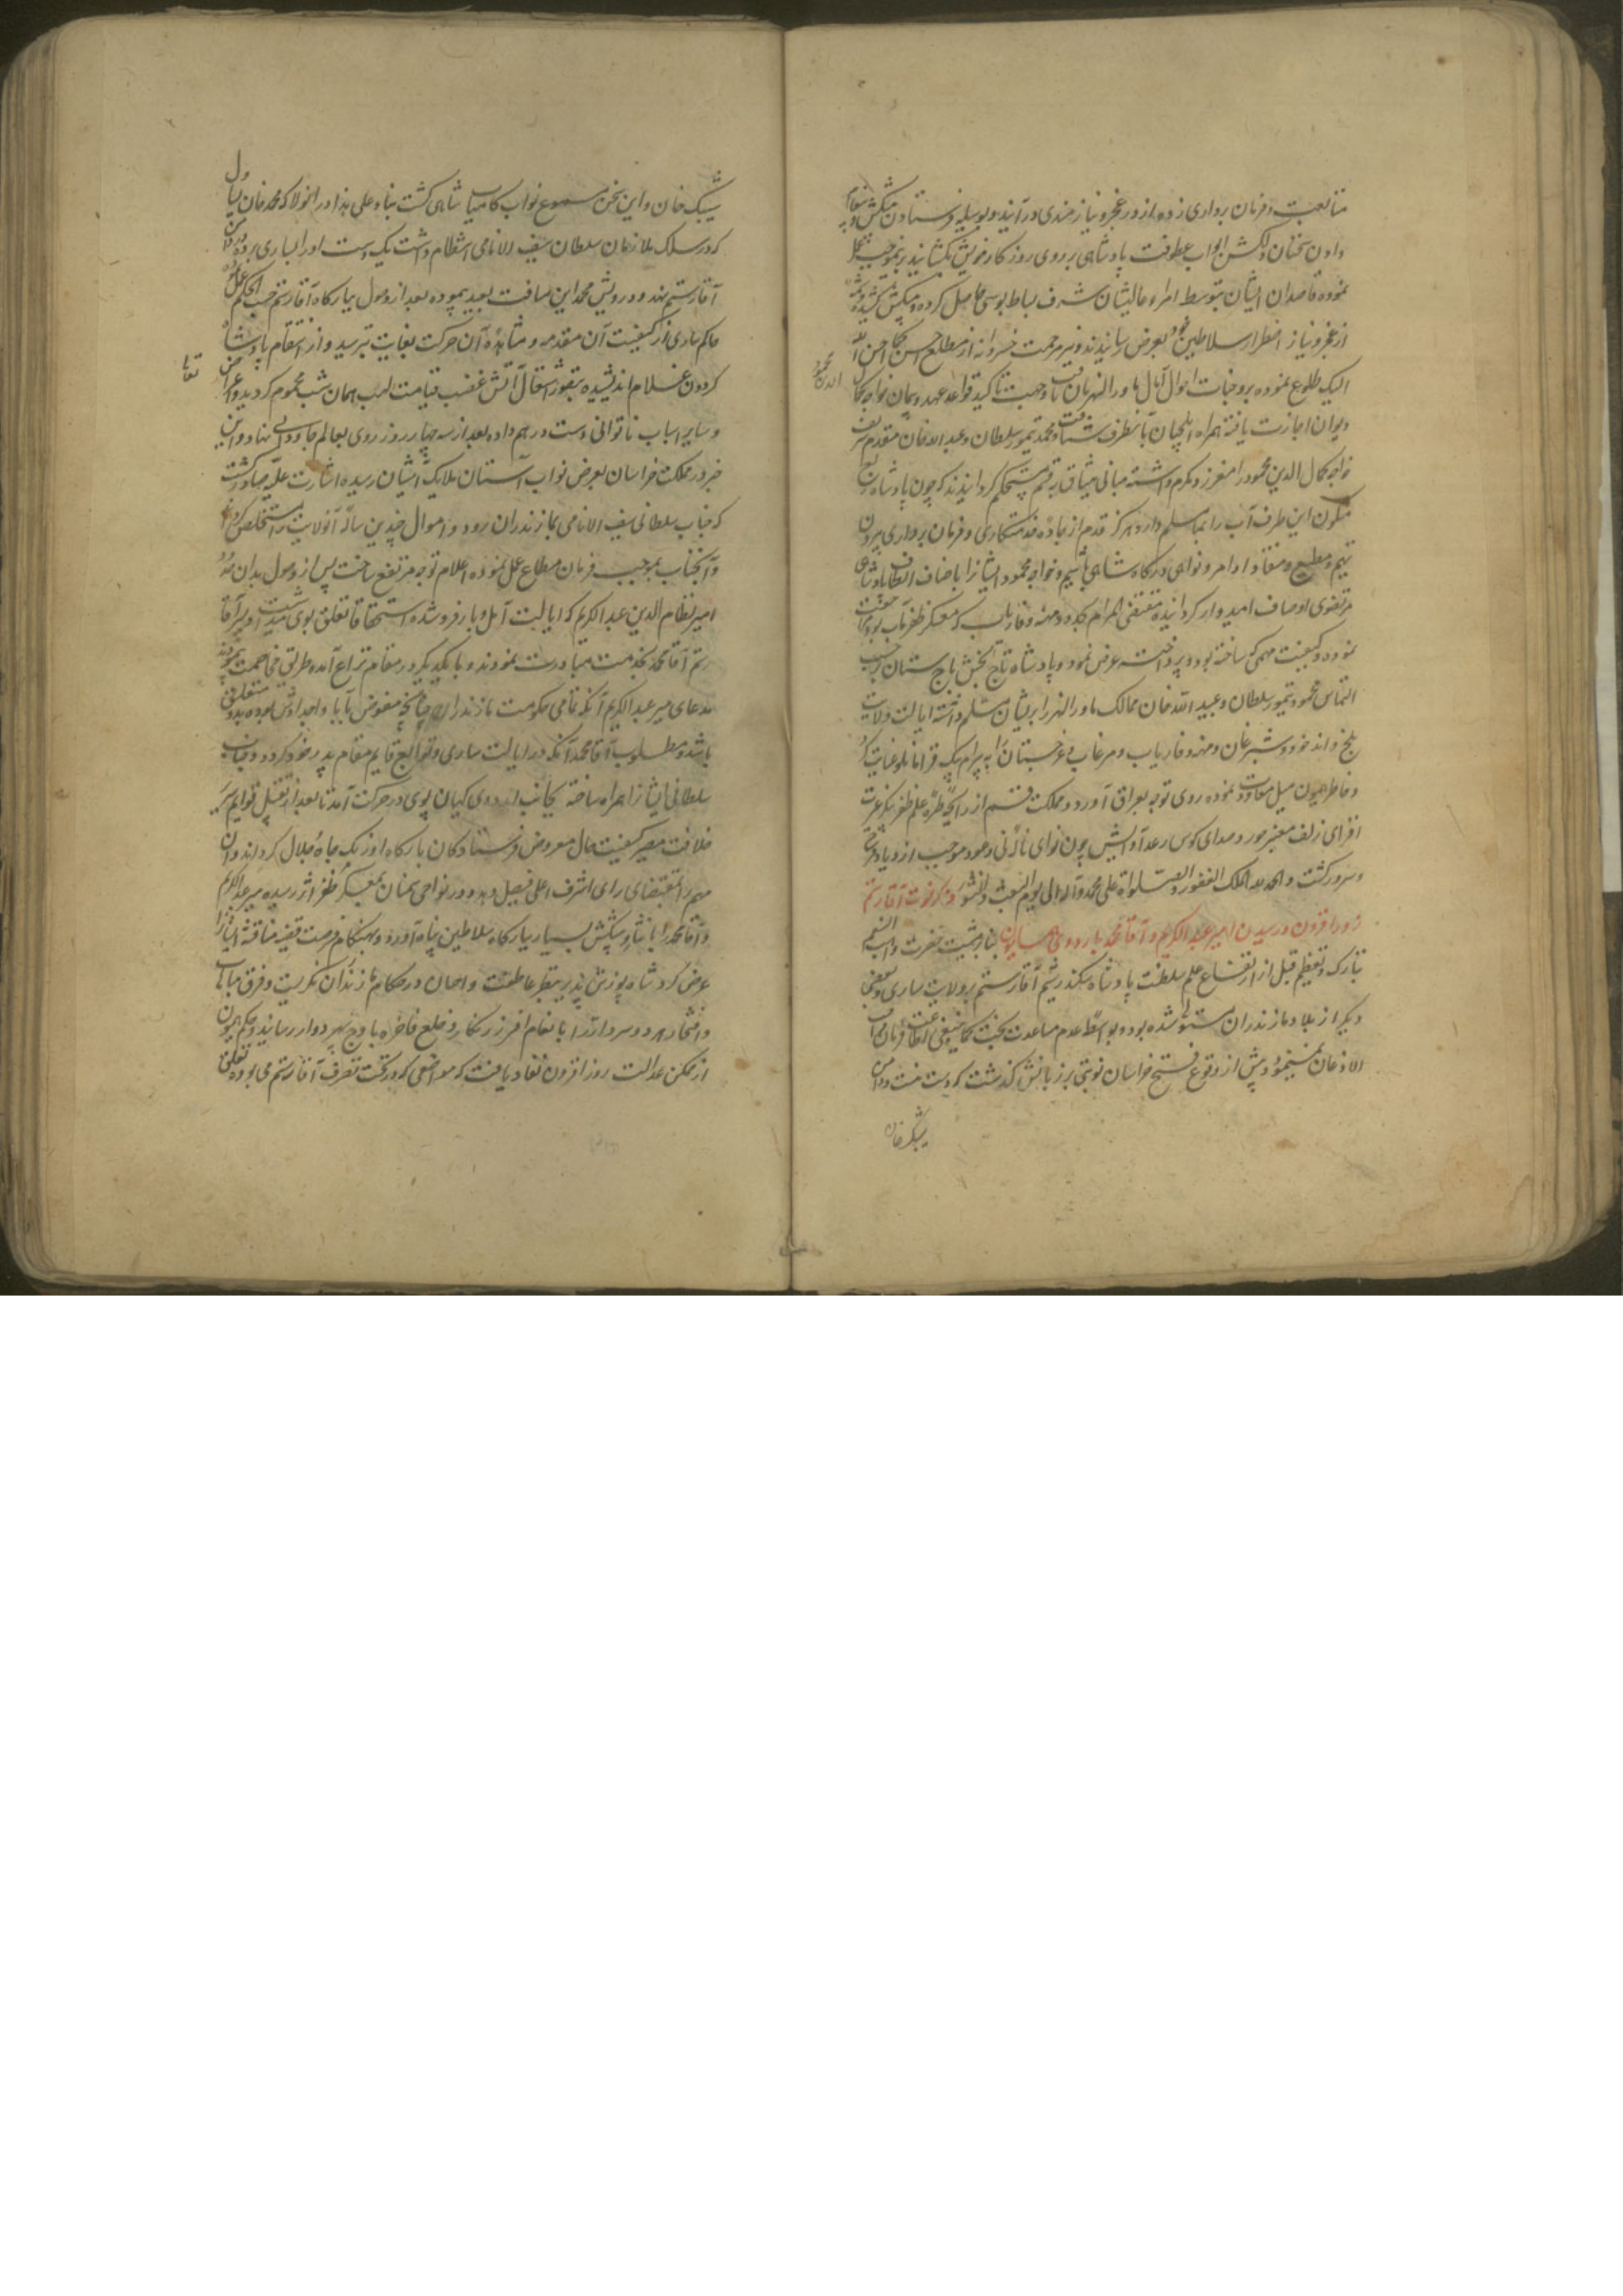 متابعت و فرمان برداری زده از در عجز و نیازمندی درآیند و بوسیله فرستادن پیشکش و پیغام
دادن سخنان دلکش ابواب عطوفت پادشاهی بر روی روزگار خویش بگشایند برینموجب عمل
نموده قاصدان ایشان بتوسط امراء عالیشان شرف بساط بوسی حاصل کرده و پیشکش کشیده
از عجز و نیاز اضطرار سلاطین خود بعرض رسانیدند و نیر مرحمت خسروانه از مطلع احسن کما احسن الله
الیک طلوع نموده بر وجنات احوال آمال ماورالنهریان تافت و جهت تاکید قواعد عهد و پیمان خواجه کمال
الدین محمود
دیوان اجازت یافته همراه ایلچیان بآنطرف شتافت و محمد تیمور سلطان و عبیدالله خان مقدم شریف
خواجه کمال الدین محمود را معزز و مکرم داشته مبانی میثاق بقسم مستحکم گردانیدند که چون پادشاه ربع
مسکون این طرف آب را بما مسلم دارد هرگز قدم از جاده خدمتکاری و فرمان برداری بیرون
ننهیم و مطیع و منقاد اوامر و نواهی درگاه شاهی باشیم و خواجه محمود ایشانرا باصناف الطاف پادشاه
مرتضوی اوصاف امیدوار گردانیده مقتضی المرام بحدود میمنه و فاریاب که معسکر ظفر مآب بود مراجعت
نموده و کیفیت مهمی که ساخته بود و پرداخته عرض نمود و پادشاه تاج بخش باج ستان برحسب
التماس محمد تیمور سلطان و عبیدالله خان ممالک ماورالنهر را بریشان مسلم داشته ایالت ولایت
بلخ و اندخود و شبرغان و میمنه و فاریاب و مرغاب و غرجستان را به بیرام بیک قرامانلو عنایت کرد
و خاطر همیون میل معاودت نموده روی توجه بعراق آورد و مملکت قم از رایحه طره علم ظفر پیکر غیرت
افزای زلف معنبر حور و صدای کوس رعد آوایش چون نوای ناله نی و عود موجب ازدیاد فرح
و سرور گشت و الحمدلله الملک الغفور والصلواة علی محمد و آله الی یوم البعث والنشور ذکر فوت آقا رستم
روز افزون و رسیدن امیر عبدالکریم و آقا محمد باردوی همایون بنابر مشیت حضرت واهب النعیم
تبارک و تعظم قبل از ارتفاع علم سلطنت پادشاه سکندر شیم آقا رستم بر ولایت ساری و بعضی
دیگر از بلاد مازندران مستولی شده بود و بواسطه عدم مساعدت بخت کما ینبغی اطاعت فرمان واجب
الاذعان نمینمود و پیش از وقوع فتح خراسان نوبتی بر زبانش گذشت که دست منست و دامن
شیبک خان
شیبک خان و این سخن مسموع نواب کامیاب شاهی گشت بناء علی هذا در انولا که محمد خان یساول
که در سلک ملازمان سلطان سیف الانامی انتظام داشت یک دست او را بساری برده در دامن
آقا رستم نهد و درویش محمد این مسافت بعید پیموده بعد از وصول ببارگاه آقا رستم حسب الحکم عمل نمود
حاکم ساری از کیفیت آن مقدمه و مشاهده آن حرکت بغایت بترسید و از انتقام پادشاه
گردون غلام اندیشیده بتصور اشتعال آتش غضب قیامت لهب همان شب محموم گردید و اعراض
و سایر اسباب ناتوانی دست درهم داده بعد از سه چهار روز روی بعالم جاودانی نهاد و این
خبر در مملکت خراسان بعرض نواب آستان ملایک آشیان رسیده اشارت علیه صادر گشت
که جناب سلطانی سیف الانامی بمازندران رود و اموال چندین ساله آنولایت را مستخلص گرداند
و آنجناب بموجب فرمان مطاع عمل نموده اعلام توجه مرتفع ساخت پس از وصول بدان حدود
امیر نظام الدین عبدالکریم که ایالت آمل و بارفروشده استحقاقا تعلق بوی میداشت و پسر آقا
رستم آقا محمد بخدمت مبادرت نمودند و با یکدیگر در مقام نزاع آمده طریق مخاصمت پیمودند
مدعای میر عبدالکریم آنکه تمامی حکومت مازندران چنانچه مفوض بآبا و اجداد وی بوده بدو متعلق
باشد و مطلوب آقا محمد آنکه در ایالت ساری و توابع قایم مقام پدر خود گردد و جناب
سلطانی ایشانرا همراه ساخته بجانب اردوی کیهان پوی در حرکت آمد تا بعد از تقبیل قوایم سریر
خلافت مصیر کیفیت حال معروض فرستادگان بارگاه اوزنک جاه و جلال گرداند و آن
مهم را بمقتضای رای اشرف اعلی فیصل دهد و در نواحی سمنان بمعسکر ظفر اثر رسیده میر عبدالکریم
و آقا محمد را با نثار و پیشکش بسیار ببارگاه سلاطین پناه آورد و بهنگام فرصت قضیه مناقشه ایشانرا
عرض کرد شاه پوزش پذیر بنظر عاطفت و احسان در حکام مازندران نگریست و فرق مباهات
و افتخار هر دو سردار را بانعام افسر زرنگار و خلع فاخره باوج سپهر دوار رسانید و حکم همیون
از مکمن عدالت روز افزون نفاذ یافت که مواضعی که در تحت تصرف آقا رستم می بوده تعلق